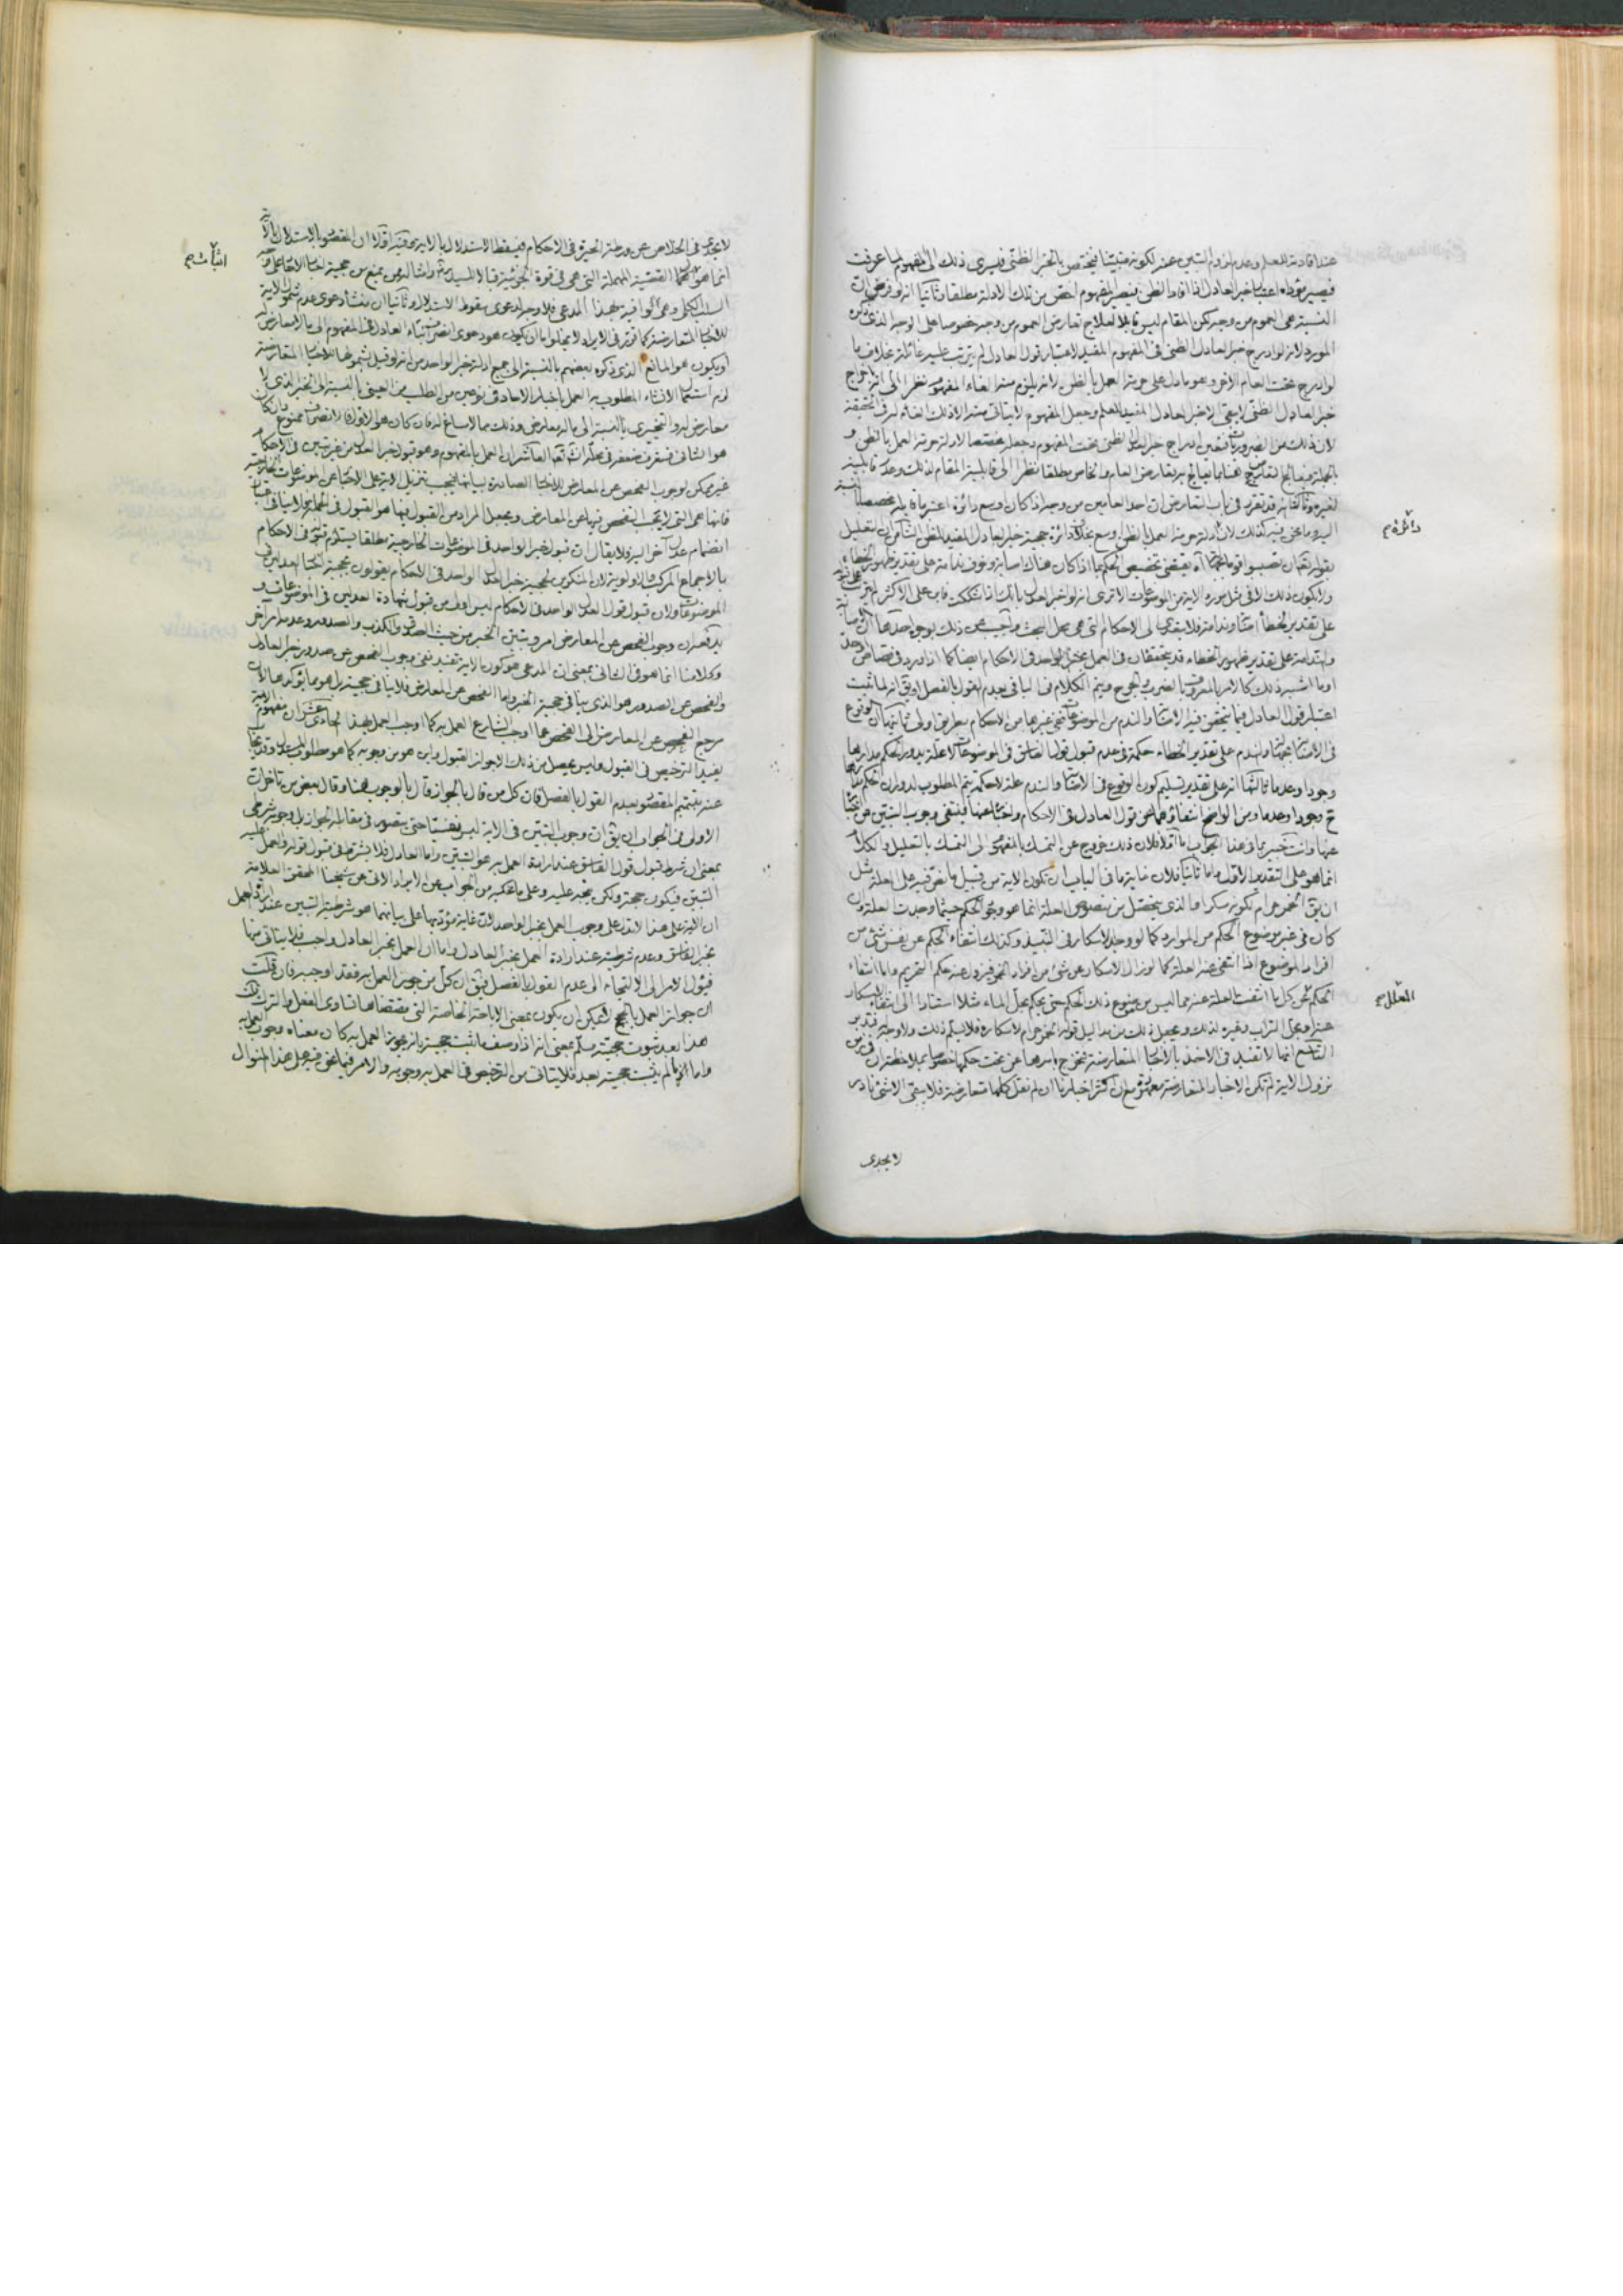 عند افادته للعلم وعدم لزوم التبين عند لكونه مبيّنا فيختص بالخبر الظنّى فيسرى ذلك الى المفهوم لما عرفت
فيصير مؤداه اعتبار خبر العادل اذا افاد الظن فيصير المفهوم اخصّ من تلك الادلة مطلقا وثانيا انه لو فرض ان
النسبة هى العموم من وجه لكن المقام ليس قابلا لعلاج تعارض العموم من وجه خصوصا على الوجه الذى ذكره
المورد لانه لو ادرج خبر العادل الظنى فى المفهوم المفيد لاعتبار قول العادل لم يترتب عليه غائلة بخلاف ما
لو ادرج تحت العام الاخر وهو ما دل على حرمة العمل بالظن لانه يلزم منه الغاء المفهوم نظرا الى اخراج
خبر العادل الظنى لا يبقى الا خبر العادل المفيد للعلم وجعل المفهوم
لان ذلك من الضروريات فتعين ادراج خبر العادل الظنى تحت المفهوم وجعله مخصصا لادلة حرمة العمل بالظن و
بالجملة فيعالج التعارض هنا بما يعالج به تعارض العام والخاص مطلقا نظرا الى قابلية المقام لذلك وعدم قابليته
لغيره وثالثا انه قد تقرر فى باب التعارض ان احد العامين من وجه اذا كان اوسع دائرة اعتبر ما قابله مخصصا بالنسبة
اليه وما نحن فيه كذلك لان ادلة حرمة العمل بالظن اوسع دائرة من حجية خبر العادل المفيد للظن الثامن ان التعليل
بقوله تعالى ان تصيبوا قوما بجهالة آه يقتضى تخصيص الحكم بما اذا كان هناك اصابة وخوف ندامة على تقدير ظهور الخطاء
ولا يكون ذلك الا فى مثل مورد الاية من الموضوعات الا ترى انه لو اخبر العدل
على تقدير الخطأ
وندامة على تقدير ظهور الخطاء قد يتحققان فى العمل بخبر الواحد فى الاحكام ايضا كما اذا ورد فى قصاص
او ما اشبه ذلك كالامر بالمعروف بالضرب والجرح ويتم الكلام فى الباقى بعدم القول بالفصل او يق انه لما ثبت
اعتبار قول العادل فيما يتحقق فيه الاصابة والندم من الموضوعات ففى غيرها من الاحكام بطريق اولى ثانيها ان الوقوع
فى الاصابة بجهالة والندم على تقدير الخطاء حكمة فى عدم قبول قول الفاسق فى الموضوعات لا علة يدور الحكم مدارها
وجودا وعدما ثالثها انه على تقدير تسليم كون الوقوع فى الاصابة والندم علة لا حكمة يتم المطلوب لدوران الحكم مدارها
ح وجودا وعدما ومن الواضح انتفاؤهما عن قول العادل فى الاحكام
عنها وانت خبير بما فى هذا الجواب اما اولا فلان ذلك خروج عن التمسك بالمفهوم الى التمسك بالتعليل والكلام
انما هو على التقدير الاول واما ثانيا فلان غاية ما فى الباب ان تكون الاية من قبيل ما نص فيه على العلة مثل
ان يق الخمر حرام لكونه مسكرا والذى يتحصل من منصوص العلة انما هو وجود الحكم حيثما وجدت العلة وان
كان فى غير موضوع الحكم من الموارد كما لو وجد الاسكار فى النبيذ وكذلك انتفاء الحكم عن بعض شئ من
افراد الموضوع اذا انتفى عنه العلة كما لو زال الاسكار عن شئ من افراد الخمر فيزول عنه حكم التحريم واما انتفاء
الحكم عن كل ما انتفت العلة عنه مما ليس من موضوع ذلك الحكم حتى يحكم بحلّ الماء مثلا استنادا الى انتفاء الاسكار
عنه وبحل التراب وغيره لذلك ويجعل ذلك من مداليل قوله الخمر حرام لاسكاره فلا يسلّم ذلك ولا وجه له فتدبر
التاسع انها لا تفيد فى الاخذ بالاخبار المتعارضة لخروجها باسرها عن تحت حكمها
نزول الاية لم تكن الاخبار المتعارضة معهودة مع ان اكثر اخبارنا ان لم نقل كلها متعارضة فلا يبقى الا شئ نادر
دائرة م
المعلل م
لا يجدى
لا يجدى فى الخلاص عن ورطة الحيرة فى الاحكام فيسقط الاستدلال بالاية وفيه اولا ان المقصود بالاستدلال بالاية
انما هو القضية المهملة التى هى فى قوة الجزئية
السلب الكلى وهى وافية بهذا المدعى فلا وجه لدعوى سقوط الاستدلال وثانيا ان منشأ دعوى عدم شمول الاية
للاخبار المتعارضة كما قرره فى الايراد لا يخلو اما ان يكون هو دعوى انصراف نباء العادل فى المفهوم الى ما لا معارض له
او يكون هو المانع الذى ذكره بعضهم بالنسبة الى جميع ادلة خبر الواحد من انه لو قيل بشمولها للاخبار المتعارضة
لزم استعمال الانشاء المطلوب به العمل باخبار الاحاد فى نوعين من الطلب من العينى بالنسبة الى الخبر الذى لا
معارض له والتخييرى بالنسبة الى ما له معارض وذلك مما لا مساغ له فان كان هو الاول فالانصراف ممنوع وان كان
هو الثانى فستعرف ضعفه فى محله انشاء الله تعالى العاشر ان العمل بالمفهوم وهو قبول خبر العدل من غير تبين فى الاحكام
غير ممكن لوجوب الفحص عن المعارض للاخبار الصادرة
فانها هى التى لا يجب الفحص فيها عن المعارض ويجعل المراد من القبول فيها هو القبول فى الجملة فلا ينافى
انضمام عدل آخر اليه ولا يقال ان قبول خبر الواحد فى الموضوعات الخارجية مطلقا يستلزم قبوله فى الاحكام
بالاجماع المركب والاولوية لان المنكرين لحجية خبر العدل الواحد فى الاحكام يقولون بحجية اخبار العدلين فى
الموضوعات ولان قبول قول العدل الواحد فى الاحكام ليس اولى من قبول شهادة العدلين فى الموضوعات و
يدفعه ان وجوب الفحص عن المعارض امر وتبين الخبر من حيث الصدق والكذب والصدور وعدمه امر آخر
وكلامنا انما هو فى الثانى بمعنى ان المدعى هو كون الاية تفيد نفى وجوب الفحص عن صدور خبر العادل
والفحص عن الصدور هو الذى ينافى حجية الخبر واما الفحص عن المعارض فلا ينافى حجيته بل هو مما يؤكدها لان
مرجع الفحص عن المعارض الى الفحص عما اوجب الشارع العمل به كما اوجب العمل بهذا الحادى عشر ان مفهوم الاية
يفيد الترخيص فى القبول وليس يحصل من ذلك الا جواز القبول واين هو من وجوبه كما هو مطلوب المستدل وقد يجاب
عنه بتتميم المقصود بعدم القول بالفصل فان كل من قال بالجواز قال بالوجوب هنا وقال بعض من تاخر ان
الاولى فى الجواب ان يق ان وجوب التبين فى الاية ليس نفسيا حتى يتصور فى مقابله الجواز بل وجوبه شرطى
بمعنى ان شرط قبول قول الفاسق عند ارادة العمل به هو التبين واما العادل فلا يشترط فى قبول قوله والعمل عليه
التبين فيكون حجة ولكن يتجه عليه وعلى ما تقدم من الجواب عن الايراد الاتى عن شيخنا المحقق العلامة
ان الاية على هذا لا تدل على وجوب العمل بخبر الواحد لان غاية مؤديها على بيانهما هو شرطية التبين عند ارادة العمل
بخبر الفاسق وعدم شرطيته عند ارادة العمل بخبر العادل واما ان العمل بخبر العادل واجب فلا يتاتى منها
فيؤل الامر الى الالتجاء الى عدم القول بالفصل فيق ان كل من جوز العمل به فقد اوجبه فان قلت
ان جواز العمل بالحجج لا يمكن ان يكون بمعنى الاباحة الخاصة التى مقتضاها تساوى الفعل والترك قلت
هذا بعد ثبوت حجيته مسلّم بمعنى انه اذا وصف ما ثبت حجيته بانه يجوز العمل به كان معناه وجوب العمل به
واما اذا لم يثبت حجيته بعد فلا يتاتى من الترخيص فى العمل به وجوبه والامر فيما نحن فيه على هذا المنوال
اثبات م